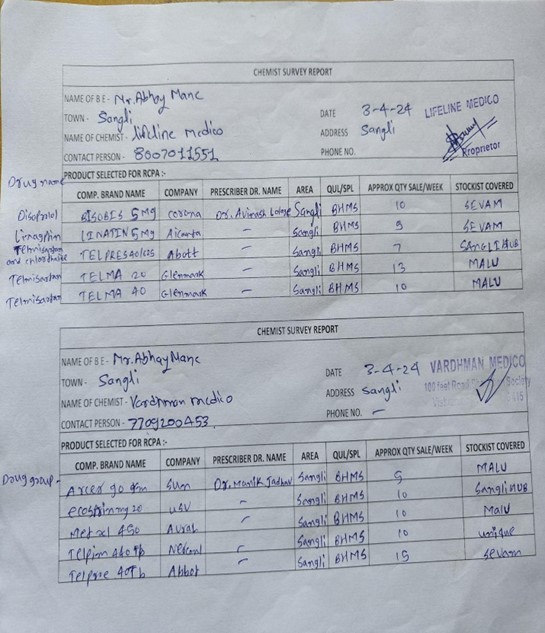 CHEMIST SURVEY REPORT
NAME OF B E - Mr. Abhay Mane
TOWN - Sangli
DATE 3-4-24 LIFELINE MEDICO
NAME OF CHEMIST - lifeline medico
ADDRESS Sangli
CONTACT PERSON - 8007011551
PHONE NO. Proprietor
PRODUCT SELECTED FOR RCPA :-
Drug name COMP. BRAND NAME COMPANY PRESCRIBER DR. NAME AREA QUL/SPL APPROX QTY SALE/WEEK STOCKIST COVERED
BISOBIS 5 MG corona Dr. Avinash Sangli BHMS 10 SEVAM
LINATIN 5 MG - Sangli BHMS 9 SEVAM
Telmisartan and Abott - Sangli BHMS 7 SANGLI HUB
Telmisartan TELMA 20 Glenmark - Sangli BHMS 13 MALU
Telmisartan TELMA 40 Glenmark - Sangli BHMS 10 MALU
CHEMIST SURVEY REPORT
NAME OF B E - Mr. Abhay Mane
TOWN - Sangli
DATE 3-4-24 VARDHMAN MEDICO
NAME OF CHEMIST - Vardhman medico
ADDRESS Sangli 100 feet Road Society
CONTACT PERSON - 7709200453
PHONE NO. -
PRODUCT SELECTED FOR RCPA :-
COMP. BRAND NAME COMPANY PRESCRIBER DR. NAME AREA QUL/SPL APPROX QTY SALE/WEEK STOCKIST COVERED
Drug group - Sun Dr. Manik Jadhav Sangli BHMS 5 MALU
USV - Sangli BHMS 10 Sangli HUB
Met xl - Sangli BHMS 10 Malu
- Sangli BHMS 10 unique
Abbot - Sangli BHMS 15 sevam